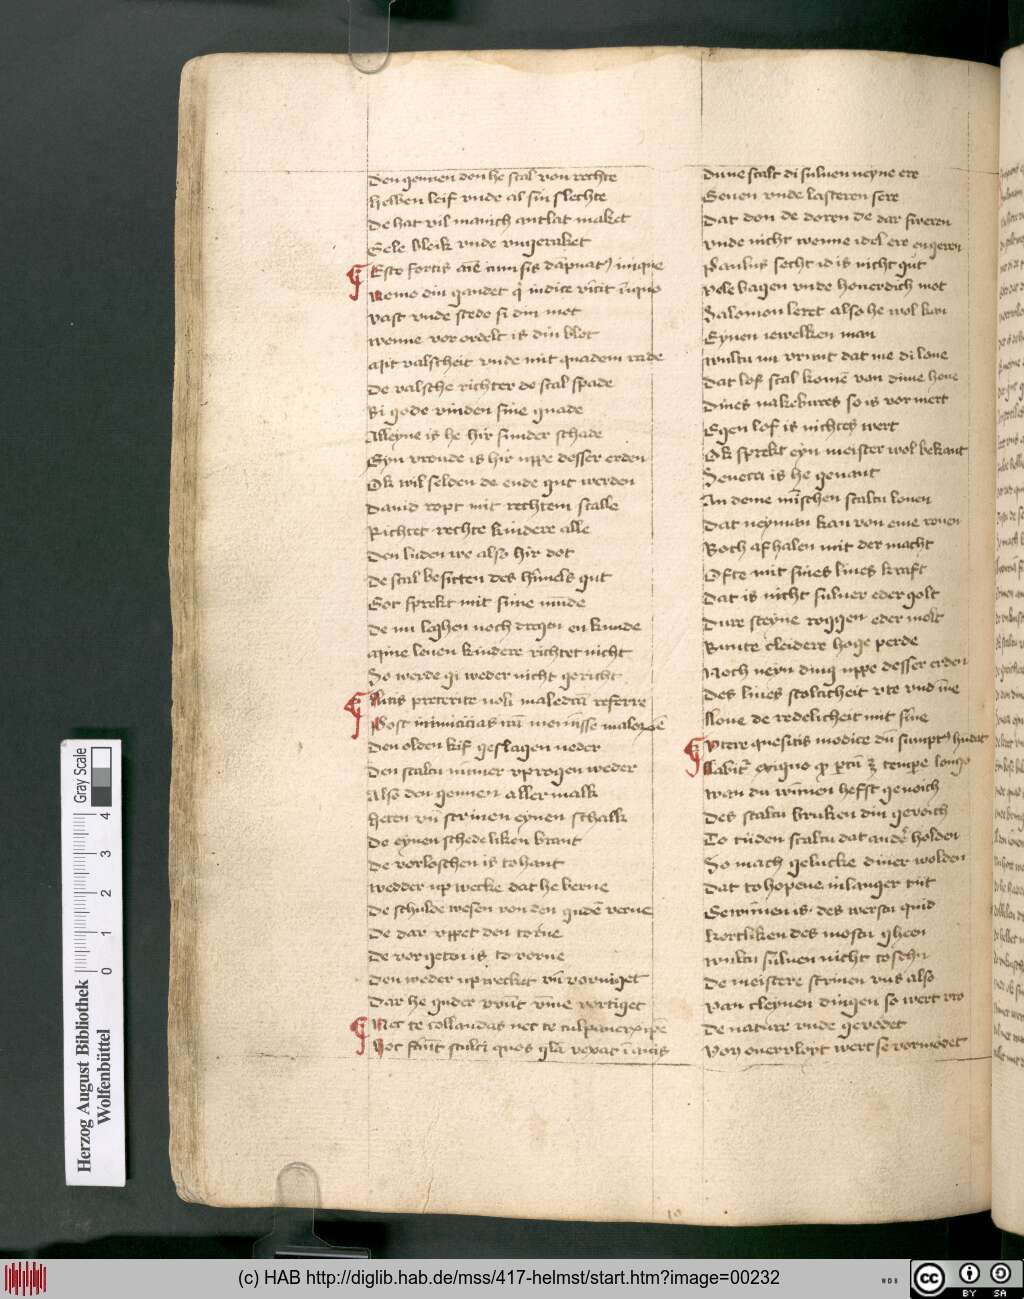 Den gennen den he scal von rechte
Helven leif vnde al sin slechte
De hat vil manich antlat maket
Gele bleik vnde vngeraket
Esto fortis aīe cum sis dāpnatꝰ inique
Nemo diu gaudet qͥ iudice vīcit īiquo
Vast vnde stede si din mot
Wenne vorordelt is din blot
Mit valscheit vnde mit quadem rade
De valsche richter de scal spade
Bi gode vinden sine gnade
Alleyne is he hir sunder schade
Syn vroude is hir vppe desser erden
Ok wil selden de ende gut werden
Dauid ropt mit rechtem scalle
Richtet rechte kindere alle
Den luden we also hir dot
De scal besitten des himels gut
Got sprekt mit sime mūde
De nu leghen noch dregen en kunde
Mine leuen kindere richtet nicht
So werde gi weder nicht gericht
Litis preterite noli maledcā referre
Post inimicicias irā meminisse maloꝝ ē
Den olden kif geslagen neder
Den scaltu nūmer vprogen weder
Also den gennen aller malk
Heten vn̄ scriuen eynen schalk
De eynen schedeliken brant
De vorloschen is tohant
Wedder up wecke dat he berne
De schulde wesen von den gudē verne
De dar vppet den torne
De vorgeten is to vorne
Den weder up wecket vn̄ vorniget
Dar he guder vrūt vm̄e vortiget
Nec te collaudas nec te culpaueꝝ ipē
Hoc faciūt stulti quos gl̄a vexat īanis
Dune scalt di suluen neyne ere
Geuen vnde lasteren sere
Dat don de doren de dar sweren
Vnde nicht wenne idel ere engeren
Paulus secht id is nicht gut
Vele bagen vnde houerdich mot
Salomon leret also he wol kan
Eynen iewelken man
Wultu mi vrunt dat me di loue
Dat lof scal komē von dime houe
Dines nakebures so is vormert
Egen lof is nichtes wert
Ok sprekt eyn meister wol bekant
Seneca is he genant
An deme mīschen scaltu louen
Dat neyman kan von eme rouen
Noch af halen mit der macht
Ofte mit sines liues kraft
Dat is nicht suluer eder golt
Dure steyne roggen eder molt
Bunte cleidere hoge perde
Noch neyn ding vppe desser erden
Des liues stolticheit vte vnd īne
Loue de redelicheit mit sine
Vtere quesitis modice dū sumptꝰ hūdat
Labitͬ exiguo qͦ ꝑtū ꝫ tempe longo
Wan du winnen hefst genoch
Des scaltu bruken din gevoch
To tiiden scaltu dat andeͬ holden
So mach gelucke diner wolden
Dat to hopene in langer tiit
Gewūnen is des werstu quid
Kortliken des mostu gheen
Wultu suluen nicht toseyn
De meistere scriuen vns also
Van cleynen dingen so wert vro
De nature vnde gevodet
Von ouervlopt wert se vormodet
Gray Scale
0 1 2 3 4
Herzog August Bibliothek
Wolfenbüttel
(c) HAB http://diglib.hab.de/mss/417-helmst/start.htm?image=00232
WDB
CC BY SA